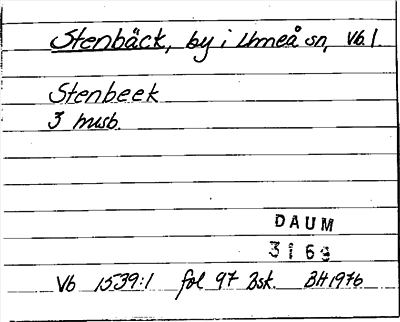 Stenbäck, by i Umeå sn, Vb. l.
Stenbeek
3 husb.
DAUM
3169
Vb 1539:1 fol 97 Bsk. BH 1976